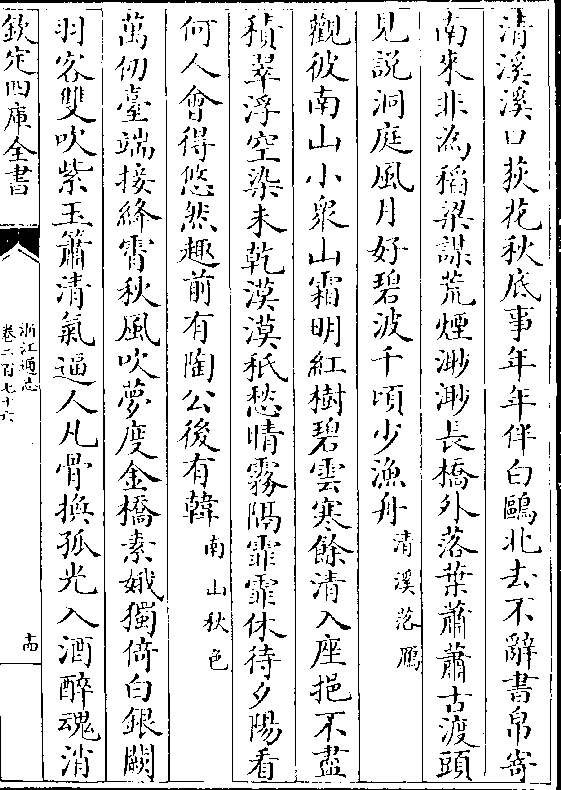 清溪溪口荻花秋底事年年伴白鷗北去不辭書帛寄
南來非為稻粱謀荒煙渺渺長橋外落葉蕭蕭古渡頭
見説洞庭風月好碧波千頃少漁舟清溪落鴈
觀彼南山小衆山霜明紅樹碧雲寒餘清入座挹不盡
積翠浮空染未乾漠漠秖愁晴霧隔霏霏休待夕陽看
何人會得悠然趣前有陶公後有韓南山秋色
萬仞臺端接絳霄秋風吹夢度金橋素娥獨倚白銀闕
羽客雙吹紫玉簫清氣逼人凡骨換孤光入酒醉魂消
欽定四庫全書
浙江通志
卷二百七十六
十四